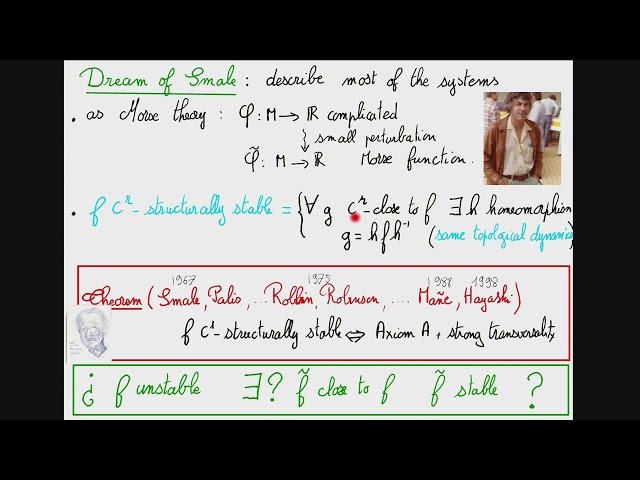 Dream of Smale : describe most of the systems
• as Morse theory : φ : M → ℝ complicated
↓ small perturbation
φ̃ : M → ℝ Morse function.
• f Cʳ- structurally stable = { ∀ g Cʳ-close to f ∃ h homeomorphism
g = h f h⁻¹ (same topological dynamics
1967 1975 1988 1998
Theorem (Smale, Palis, ... Robbin, Robinson, .... Mañe, Hayashi)
f C¹- structurally stable ⇔ Axiom A + strong transversality
¿ f unstable ∃ ? f̃ close to f f̃ stable ?